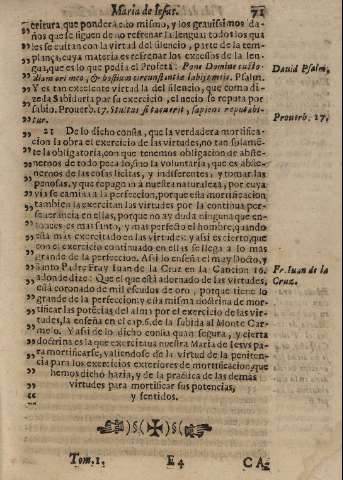 Maria de Iesus. 71
critura, que pondera esto mismo, y los grauissimos da-
ños que se siguen de no refrenar la lengua: todos los qua
les se euitan con la virtud del silencio, parte de la tem-
plança, cuya materia es refrenar los excessos de la len-
gua, que es lo que pedia el Profeta: Pone Domine custo-
diam ori meo, & hostium circunstantia labijs meis. Psalm.
Dauid Psalm,
Y es tan excelente virtud la del silencio, que como di-
ze la Sabiduria por su exercicio, el necio se reputa por
sabio. Prouerb. 17. Stultus si tacuerit, sapiens reputabi-
Prouerb. 17.
tur.
21 De lo dicho consta, que la verdadera mortifica-
cion la obra el exercicio de las virtudes, no tan solamẽ-
te la obligatoria, con que tenemos obligacion de abste-
nernos de todo pecado, sino la voluntaria, que es abste-
nernos de las cosas licitas, y indiferentes, y tomar las
penosas, y que repugnan a nuestra naturaleza, por cuya
via se camina a la perfeccion, porque esta mortificacion
tambien la exercitan las virtudes por la continua per-
seuerancia en ellas, porque no ay duda ninguna que en-
tonces es mas santo, y mas perfecto el hombre, quando
està mas exercitado en las virtudes: y assi es cierto, que
con el exercicio continuado en ellas se llega a lo mas
grande de la perfeccion. Assi lo enseña el muy Docto, y
Santo Padre Fray Iuan de la Cruz en la Cancion 16.
Fr. Iuan de la
adonde dize: Que el que està adornado de las virtudes,
Cruz.
està coronado de mil escudos de oro, porque tiene lo
grande de la perfeccion: y esta misma doctrina de mor-
tificar las potẽcias del alma por el exercicio de las vir-
tudes, la enseña en el cap. 6. de la Subida al Monte Car-
melo. Y assi de lo dicho consta quan segura, y cierta
doctrina es la que exercitaua nuestra Maria de Iesvs pa-
ra mortificarse, valiendose de la virtud de la peniten-
cia para los exercicios exteriores de mortificacion, que
hemos dicho hazia, y de la practica de las demàs
virtudes para mortificar sus potencias,
y sentidos.
Tom. 1. E 4 CA-